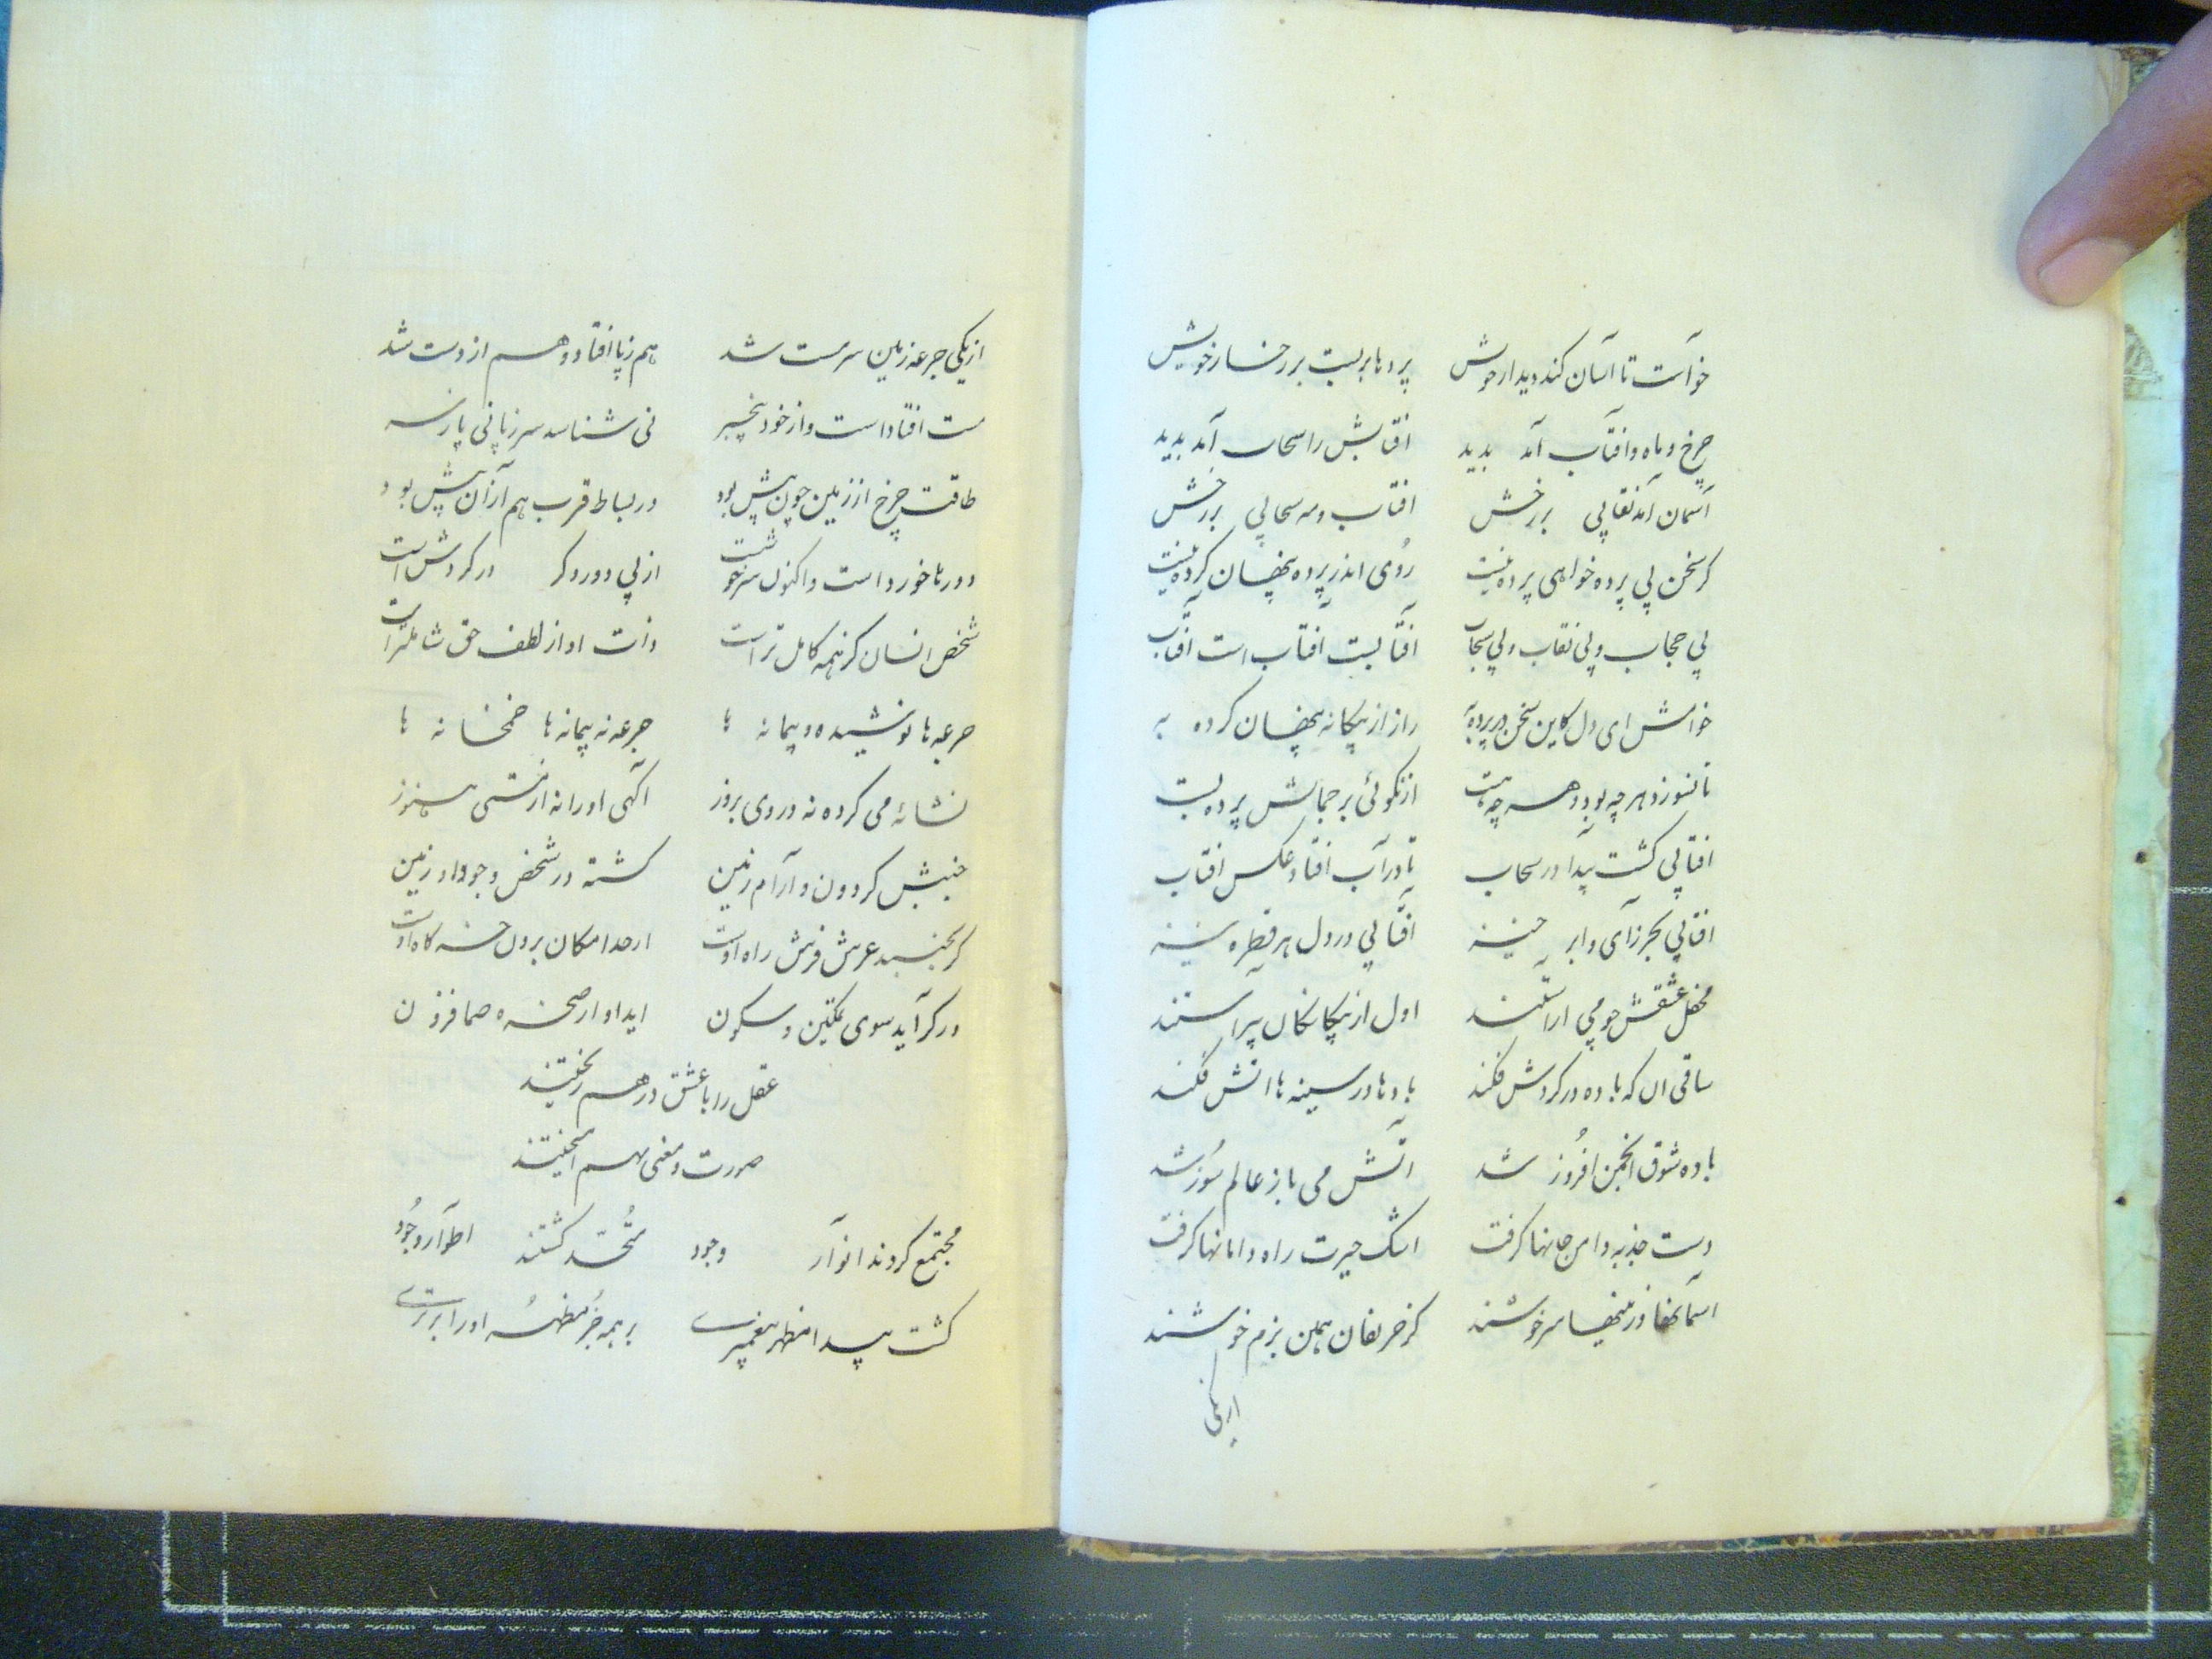 خواست تا آسان کند دیدار خویش پردها بر بست بر رخسار خویش
چرخ و ماه و افتاب آمد بدید افتابش را سحاب آمد بدید
آسمان آمد نقابی بر رخش افتاب و مه سحابی بر رخش
کر سخن بی پرده خواهی پرده نیست روی اندر پرده پنهان کرده نیست
بی حجاب و بی نقاب و بی سحاب آفتابست آفتاب است آفتاب
خامش ای دل کاین سخن در پرده به راز از بیکانه پنهان کرده به
تا نسوزد هر چه بود و هر چه هست از نکوئی بر جمالش پرده بست
افتابی کشت پیدا در سحاب تا در آب افتاد عکس افتاب
افتابی بحر زای و ابر خیز آفتابی در دل هر قطره نیز
محفل عشقش چو می اراستند اول از بیکانکان پیراستند
ساقی ان که باده در کردش فکند بادها در سینه ها اتش فکند
باده شوق انجمن افروز شد اتش می باز عالم سوز شد
دست جذبه دامن جانها کرفت اشک حیرت راه دامانها کرفت
اسمانها زان میها سرخوشند کز حریفان همین بزم خوشند
از یکی
از یکی جرعه زمین سرمست شد هم ز پا افتاد و هم از دست شد
مست افتاد است و از خود بیخبر نی شناسد سر ز پا نی پا ز سر
طاقت چرخ از زمین چون بیش بود در بساط قرب هم از آن پیش بود
دورها خورد است و اکنون سرخوشت از پی دور دکر در کردش است
شخص انسان کز همه کامل تر است ذات او از لطف حق شاملتر است
جرعه ها نوشیده و پیمانه ها جرعه نه پیمانه ها خمخانه ها
نشائه می کرده نه در وی بروز آکهی او را نه از مستی هنوز
جنبش کردون و آرام زمین کشته در شخص وجود او زمین
کر بجنبد عرش فرش راه اوست از حد امکان برون خرکاه اوست
ور کر آید سوی تمکین و سکون اید او از صخره صما فزون
عقل را با عشق درهم ریختند
صورت و معنی بهم امیختند
مجتمع کردند انوار وجود متحد کشتند اطوار وجود
کشت پیدا مظهر پیغمبری بر همه جز مظهر او را برتری